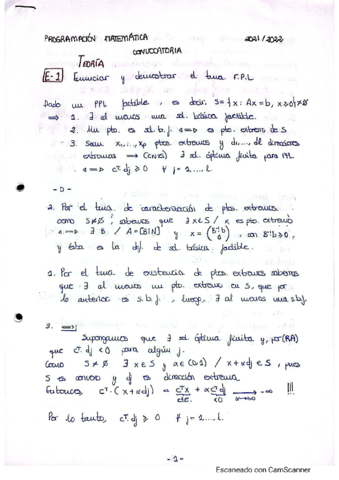 PROGRAMACIÓN MATEMÁTICA 2021/2022
CONVOCATORIA
TEORÍA
E-1 Enunciar y demostrar el tma F.P.L
Dado un PPL factible, es decir, S={x: Ax=b, x≥0}≠∅
⟹ 1. ∃ al menos una sol. básica factible.
2. Un pto. es sol. b. f. ⟺ es pto. extremo de S
3. Sean x₁,..., xₚ ptos extremos y d₁,..., dₗ direcciones
extremas ⟹ ∃ sol. óptima finita para PPL
⟺ cᵀdj ≥ 0 ∀ j=1,...,l.
-D-
2. Por el tma de caracterización de ptos. extremos
como S≠∅, sabemos que ∃ x∈S / x es pto. extremo
⟺ ∃ B / A=[B|N] y x = (B⁻¹b 0), con B⁻¹b≥0,
y ésta es la def. de sol. básica factible.
1. Por el tma de existencia de ptos. extremos sabemos
que ∃ al menos un pto. extremo en S, que por
lo anterior es s.b.f., luego, ∃ al menos una sbf.
3. ⟹
Supongamos que ∃ sol. óptima finita y, por (RA)
que cᵀdj <0 para algún j.
Como S≠∅ ∃ x∈S y / x+αdj ∈ S, pues
S es convexo y dj es dirección extrema.
Entonces, cᵀ(x+αdj) = cᵀx + αcᵀdj → -∞ !!!
cte. <0
Por lo tanto, cᵀdj ≥ 0 ∀ j=1,...,l.
-1-
Escaneado con CamScanner